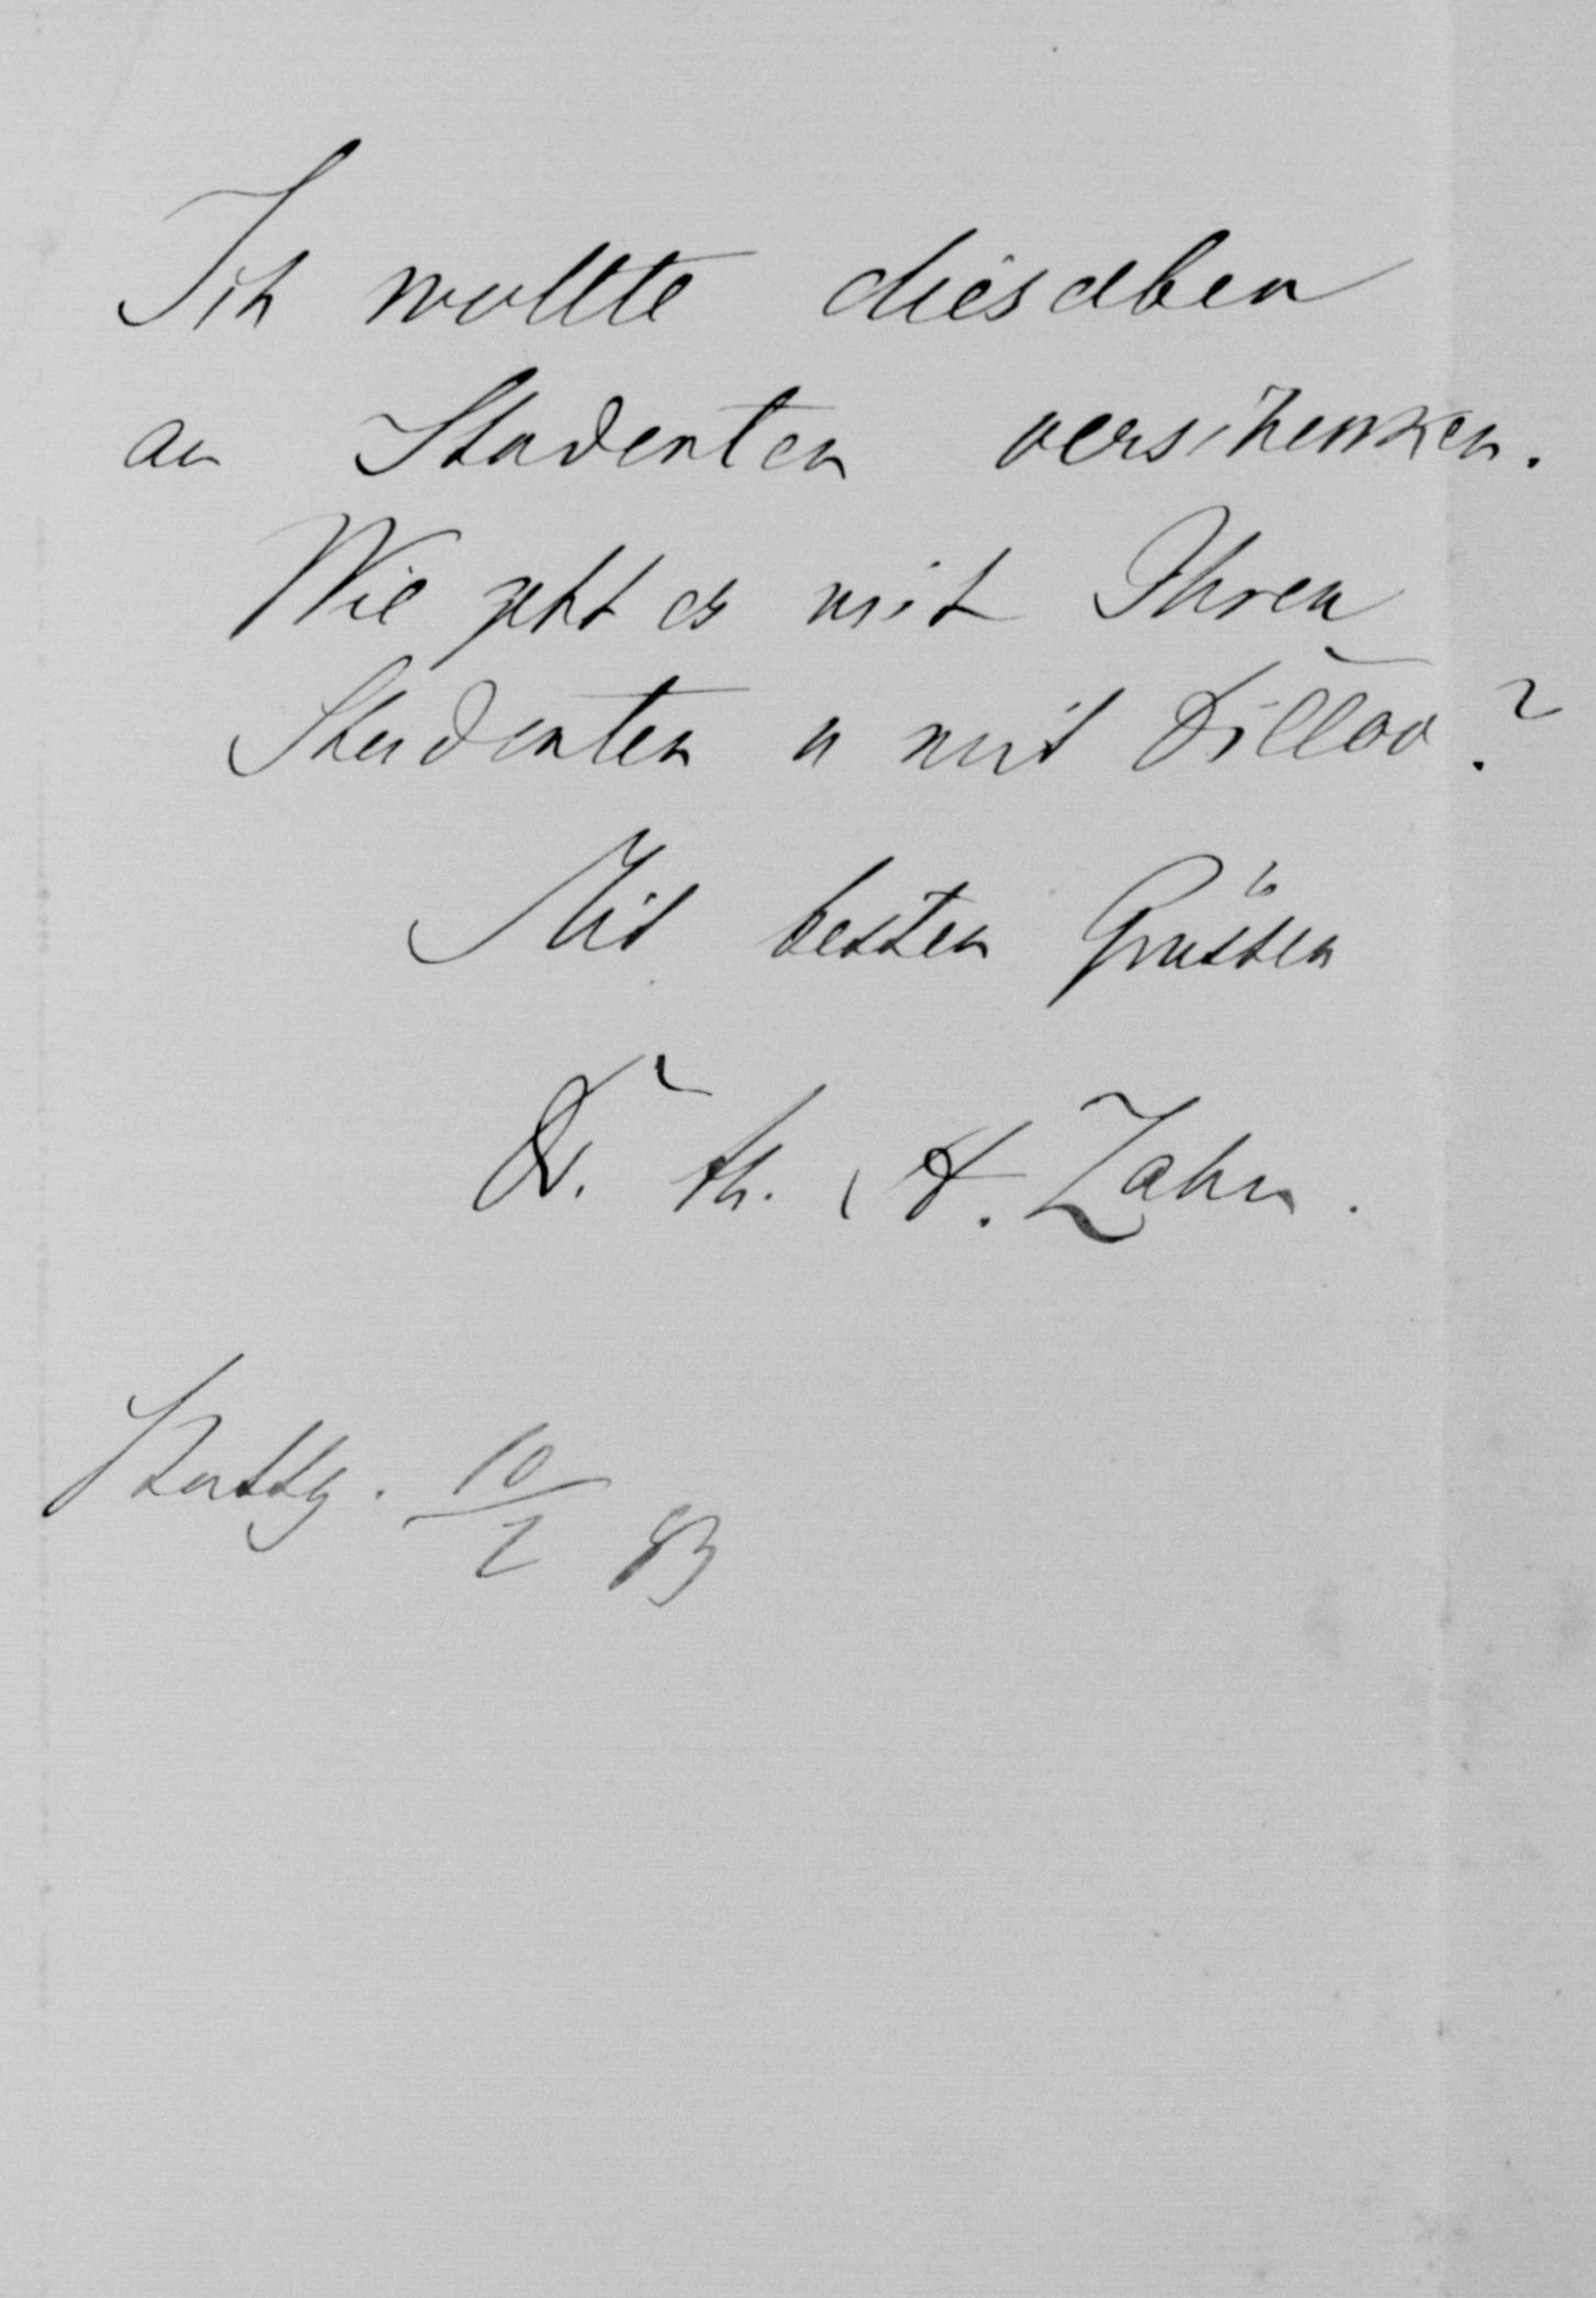 Ich wollte dieselben
an Studenten verschenken.
Wie geht es mit Ihren
Studenten u mit Dilloo?
Mit besten Grüssen
Dr. th. A. Zahn.
Stuttg. 10/2 83